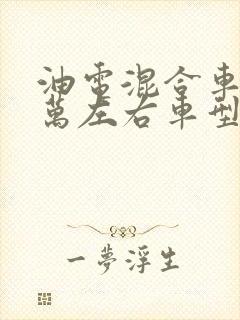 油電混合車
萬左右車型
一夢浮生